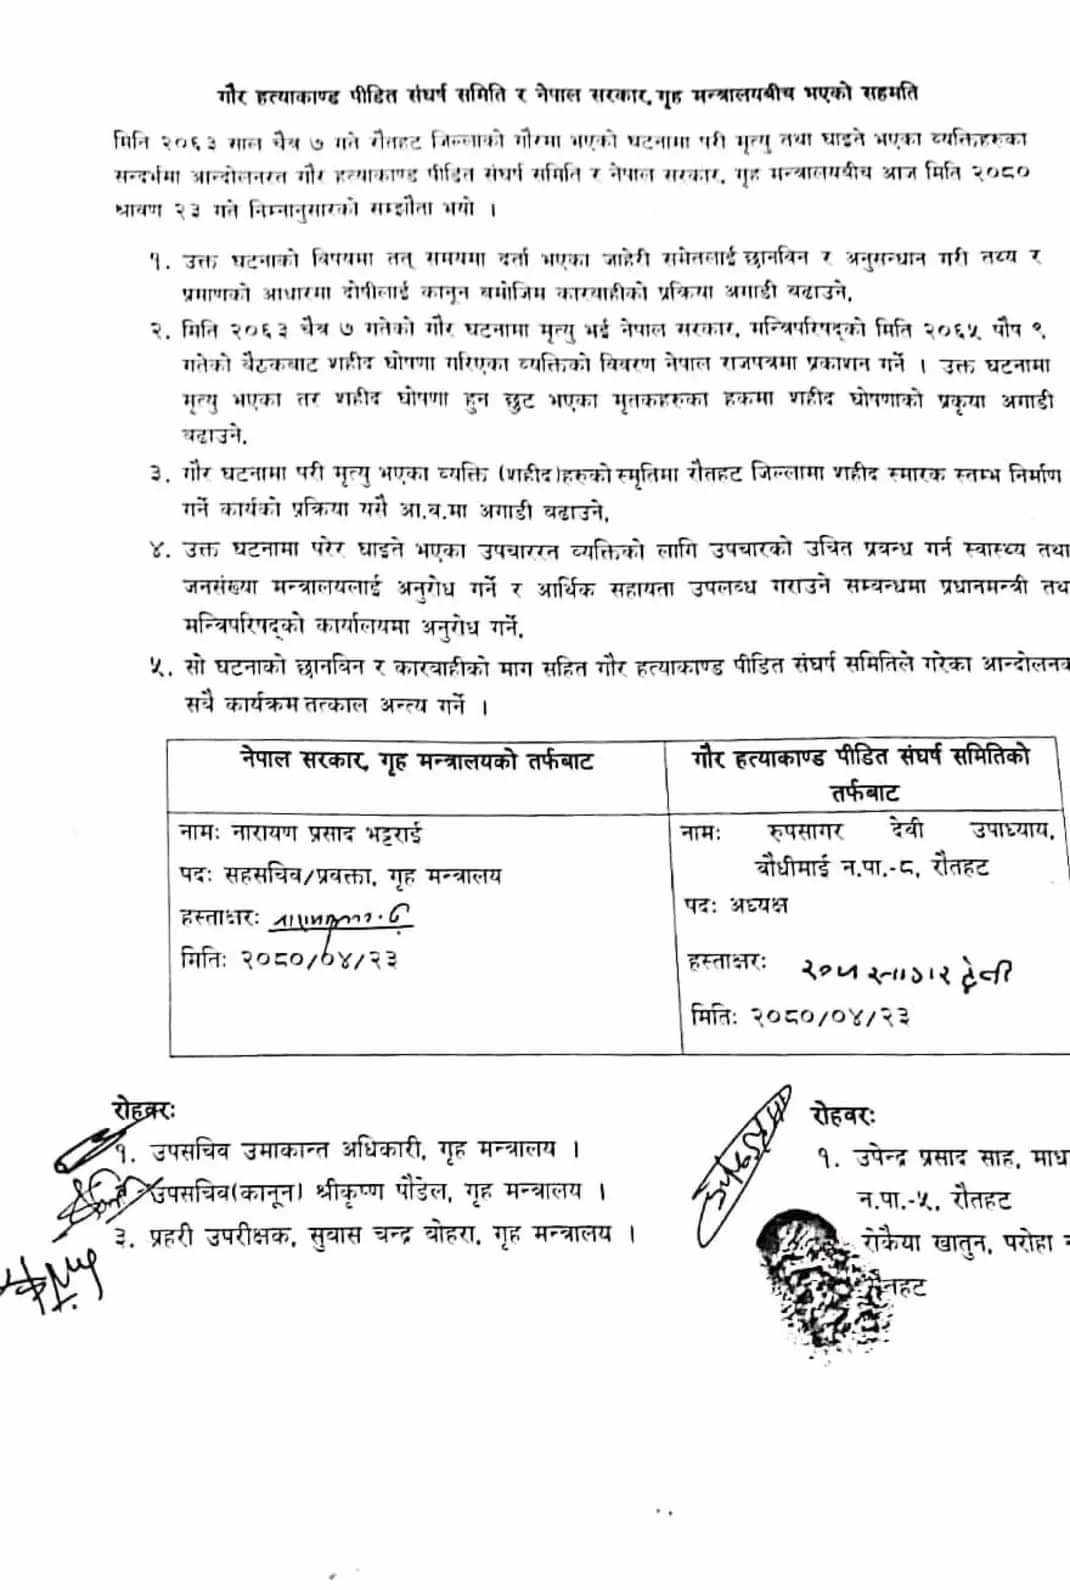 गौर हत्याकाण्ड पीडित संघर्ष समिति र नेपाल सरकार, गृह मन्त्रालयबीच भएको सहमति
मिति २०६३ साल चैत्र ७ गते रौतहट जिल्लाको गौरमा भएको घटनामा परी मृत्यु तथा घाइते भएका व्यक्तिहरुका
सन्दर्भमा आन्दोलनरत गौर हत्याकाण्ड पीडित संघर्ष समिति र नेपाल सरकार, गृह मन्त्रालयबीच आज मिति २०८०
श्रावण २३ गते निम्नानुसारको सम्झौता भयो ।
१. उक्त घटनाको विषयमा तत् समयमा दर्ता भएका जाहेरी समेतलाई छानविन र अनुसन्धान गरी तथ्य र
प्रमाणको आधारमा दोषीलाई कानून बमोजिम कारवाहीको प्रक्रिया अगाडी बढाउने,
२. मिति २०६३ चैत्र ७ गतेको गौर घटनामा मृत्यु भई नेपाल सरकार, मन्त्रिपरिषद्को मिति २०६५ पौष ९
गतेको बैठकबाट शहीद घोषणा गरिएका व्यक्तिको विवरण नेपाल राजपत्रमा प्रकाशन गर्ने । उक्त घटनामा
मृत्यु भएका तर शहीद घोषणा हुन छुट भएका मृतकहरुका हकमा शहीद घोषणाको प्रकृया अगाडी
बढाउने,
३. गौर घटनामा परी मृत्यु भएका व्यक्ति (शहीद)हरुको स्मृतिमा रौतहट जिल्लामा शहीद स्मारक स्तम्भ निर्माण
गर्ने कार्यको प्रक्रिया यसै आ.व.मा अगाडी बढाउने,
४. उक्त घटनामा परेर घाइते भएका उपचाररत व्यक्तिको लागि उपचारको उचित प्रवन्ध गर्न स्वास्थ्य तथा
जनसंख्या मन्त्रालयलाई अनुरोध गर्ने र आर्थिक सहायता उपलब्ध गराउने सम्बन्धमा प्रधानमन्त्री तथ
मन्त्रिपरिषद्को कार्यालयमा अनुरोध गर्ने,
५. सो घटनाको छानविन र कारबाहीको माग सहित गौर हत्याकाण्ड पीडित संघर्ष समितिले गरेका आन्दोलनक
सवै कार्यक्रम तत्काल अन्त्य गर्ने ।
नेपाल सरकार, गृह मन्त्रालयको तर्फबाट
नामः नारायण प्रसाद भट्टराई
पदः सहसचिव/प्रवक्ता, गृह मन्त्रालय
हस्ताक्षरः
मितिः २०८०/०४/२३
गौर हत्याकाण्ड पीडित संघर्ष समितिको
तर्फबाट
नामः रुपसागर देवी उपाध्याय,
बौधीमाई न.पा.-८, रौतहट
पदः अध्यक्ष
हस्ताक्षरः रुपसागर देवी
मितिः २०८०/०४/२३
रोहवरः
१. उपसचिव उमाकान्त अधिकारी, गृह मन्त्रालय ।
उपसचिव(कानून) श्रीकृष्ण पौडेल, गृह मन्त्रालय ।
३. प्रहरी उपरीक्षक, सुवास चन्द्र बोहरा, गृह मन्त्रालय ।
रोहवरः
१. उपेन्द्र प्रसाद साह, माध
न.पा.-५, रौतहट
रोकैया खातुन, परोहा न
रौतहट